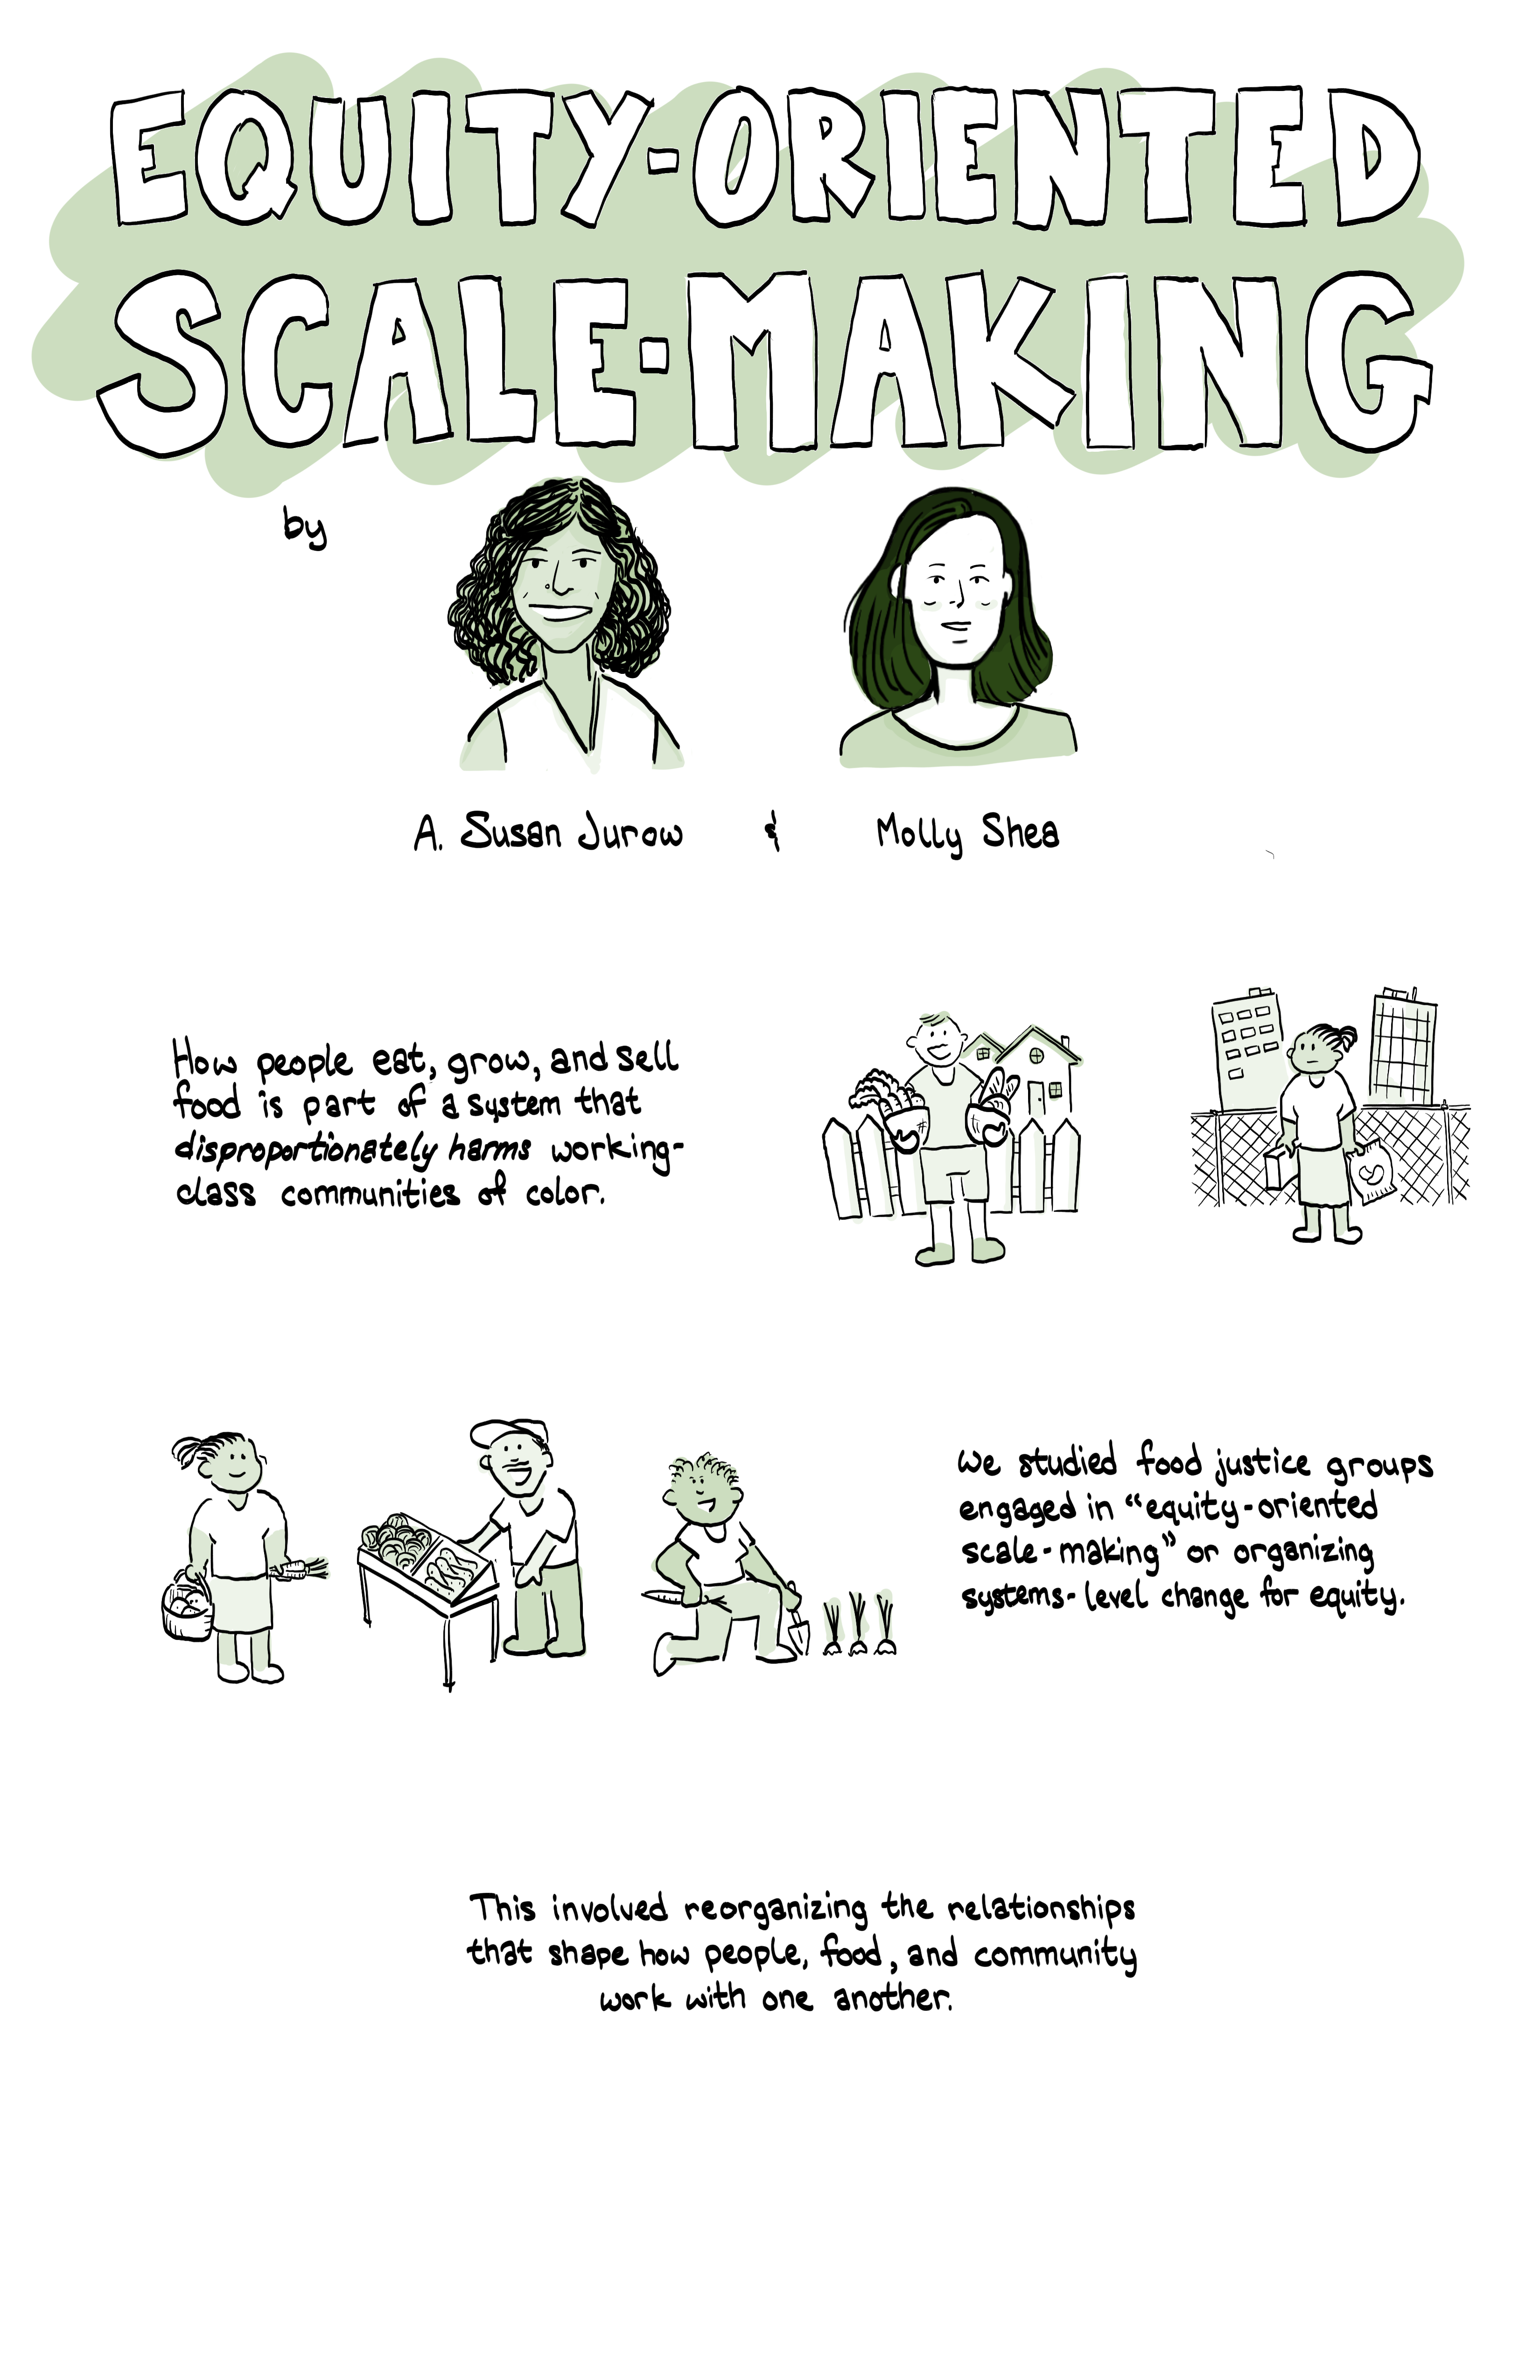 EQUITY-ORIENTED
SCALE-MAKING
by
A. Susan Jurow & Molly Shea
How people eat, grow, and sell
food is part of a system that
disproportionately harms working-
class communities of color.
We studied food justice groups
engaged in “equity-oriented
scale-making” or organizing
systems-level change for equity.
This involved reorganizing the relationships
that shape how people, food, and community
work with one another.